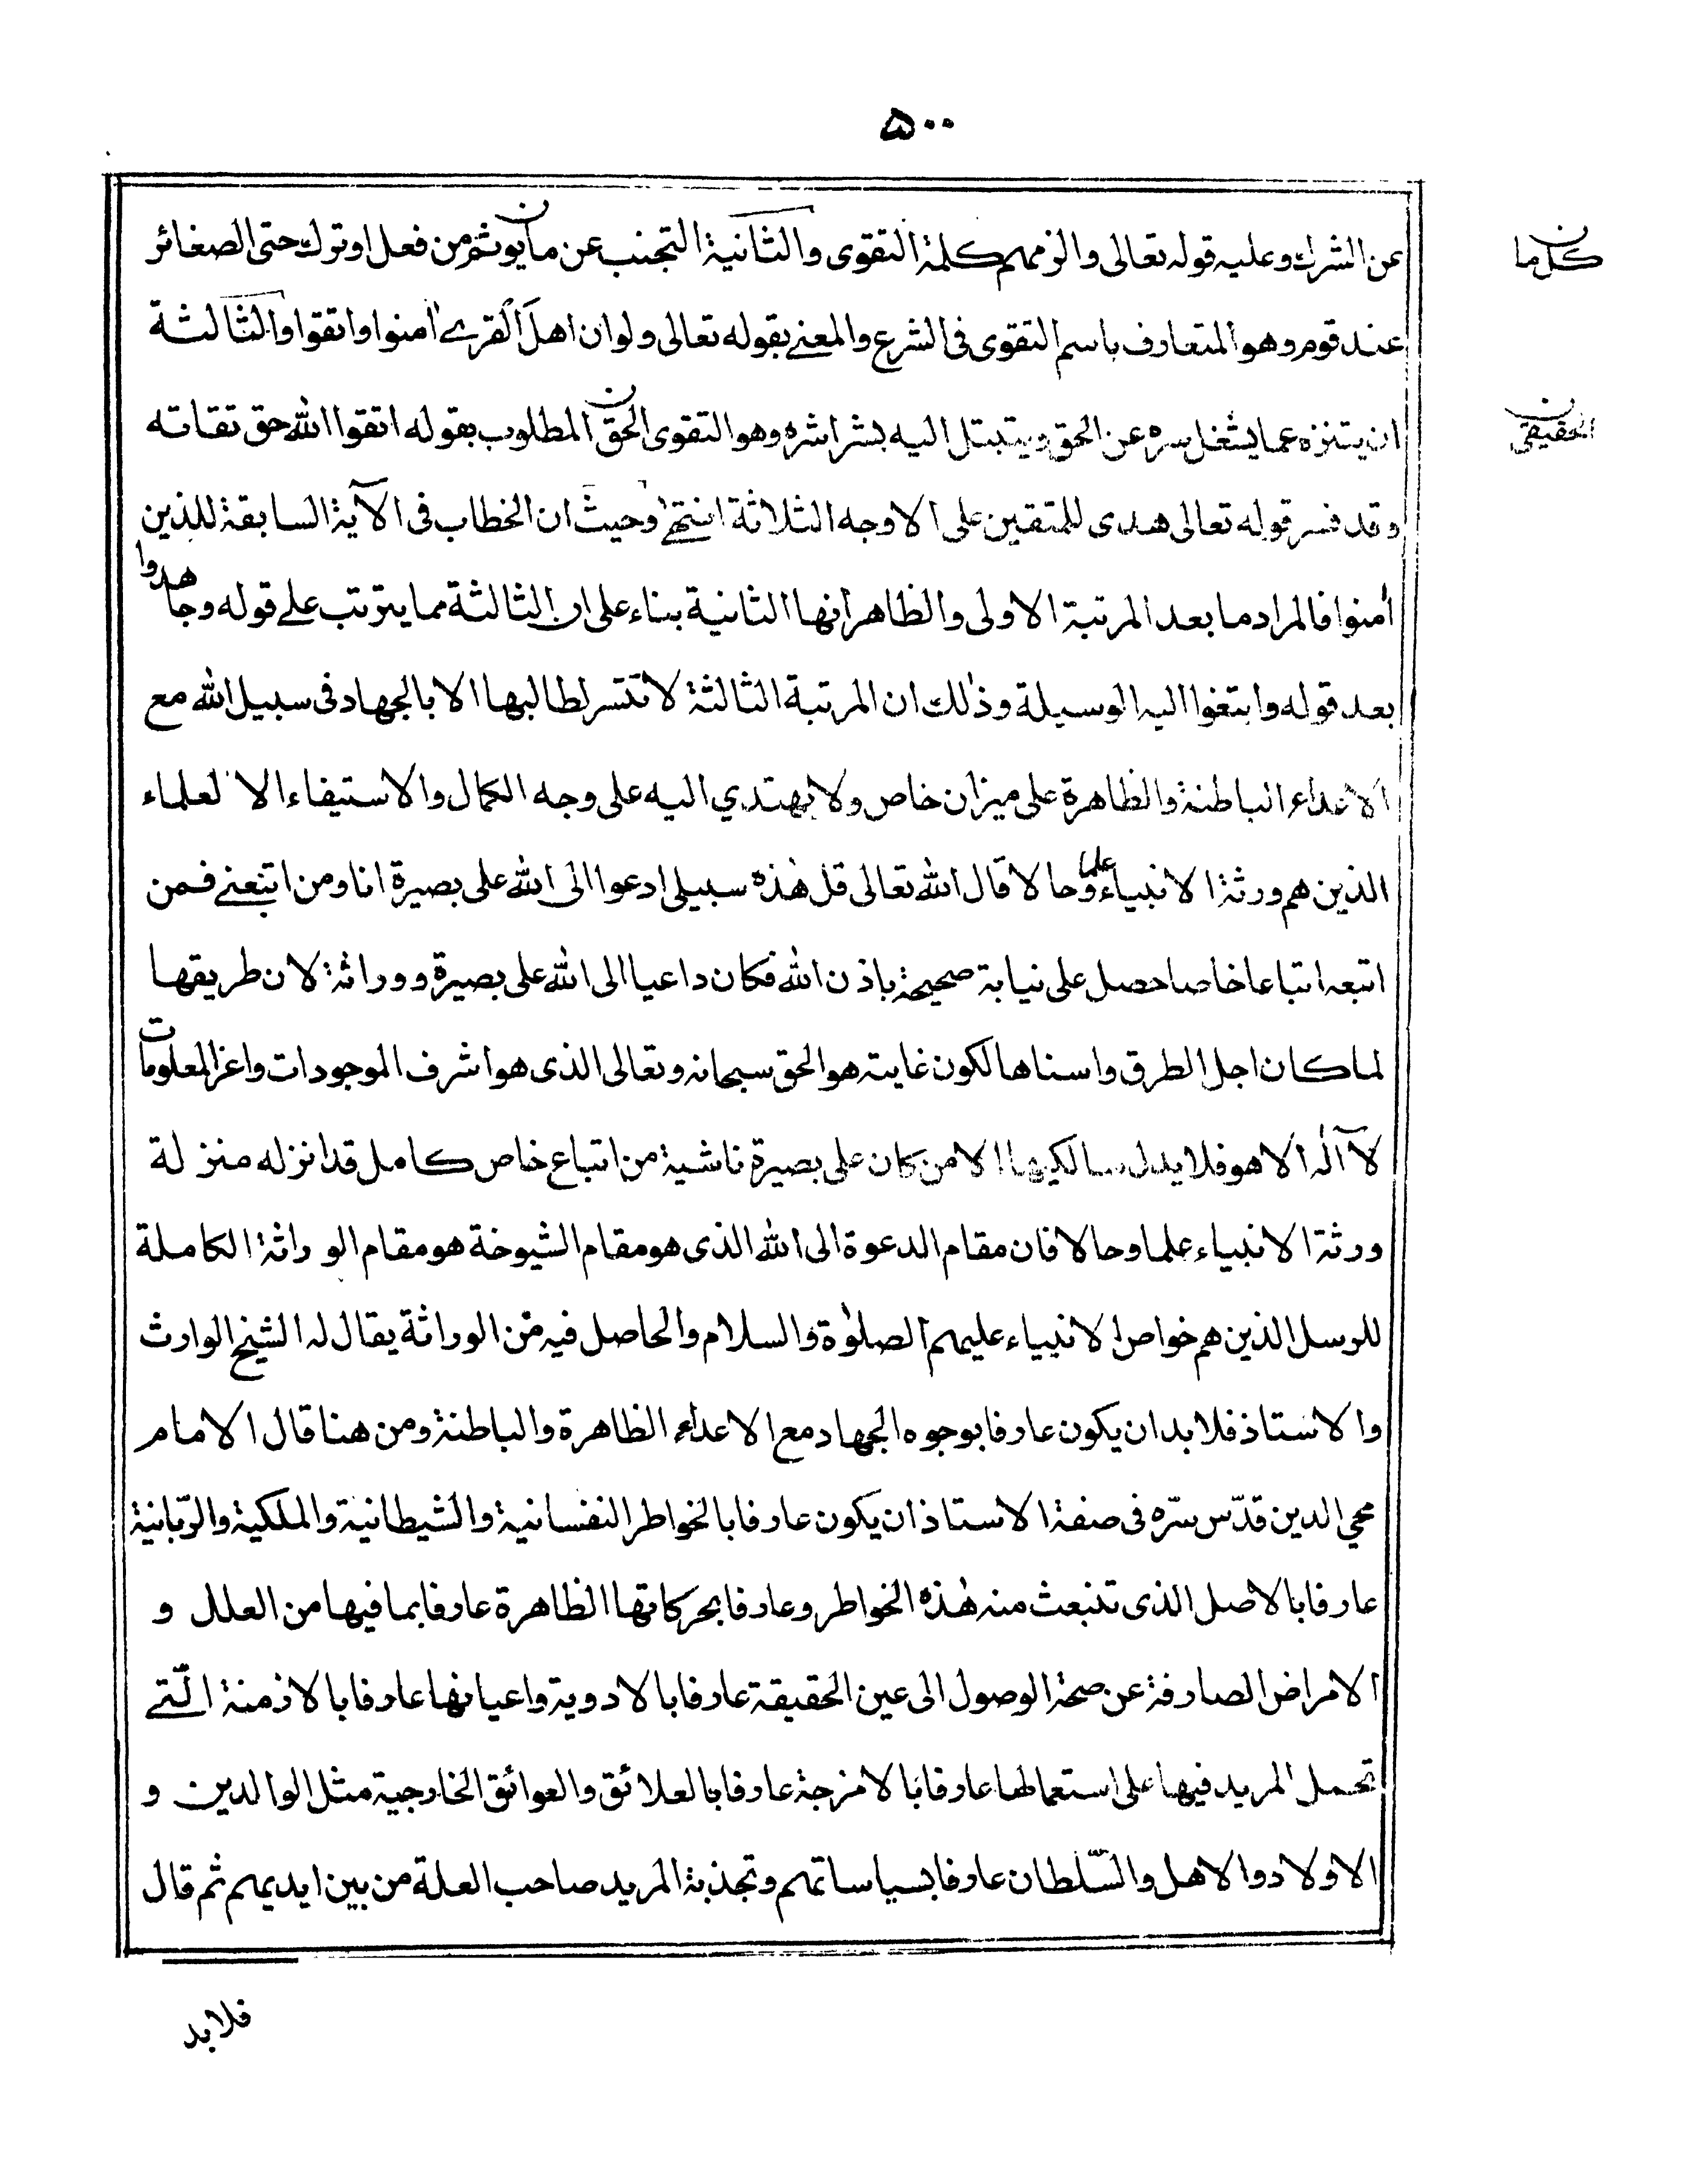 ۵۰۰
عن الشرك وعليه قوله تعالى والزمهم كلمة التقوى والثانية التجنب عن ما يوثم من فعل او ترك حتى الصغائر
ن كل ما
عند قوم وهو المتعارف باسم التقوى فى الشرع والمعنے بقوله تعالى ولو ان اهل القرےٰ اٰمنوا واتقوا والثالثة
ان يتنزه عما يشغل سره عن الحق ويتبتل اليه بشراشره وهو التقوى الحق المطلوب بقوله اتقوا الله حق تقاته
ن الحقيقى
وقد فسر قوله تعالى هدى للمتقين على الاوجه الثلاثة انتهےٰ وحيث ان الخطاب فى الآية السابقة للذين
اٰمنوا فالمراد ما بعد المرتبة الاولى والظاهر انها الثانية بناء على ان الثالثة مما يترتب علے قوله وجاهدوا
بعد قوله وابتغوا اليه الوسيلة وذٰلك ان المرتبة الثالثة لا تتسر لطالبها الا بالجهاد فى سبيل الله مع
الاعداء الباطنة والظاهرة على ميزان خاص ولا يهتدي اليه على وجه الكمال والاستيفاء الا العلماء
الذين هم ورثة الانبياء علما وحالا قال الله تعالى قل هٰذه سبيلى ادعوا الى الله على بصيرة انا ومن اتبعنے فمن
اتبعه اتباعا خاصا حصل على نيابة صحيحة باذن الله فكان داعيا الى الله على بصيرة ووراثة لان طريقها
لما كان اجل الطرق واسناها لكون غايته هو الحق سبحانه وتعالى الذى هو اشرف الموجودات واعز المعلومات
لآ الٰه الا هو فلا يدل سالكيها الا من كان على بصيرة ناشية من اتباع خاص كامل قد انزله منزلة
ورثة الانبياء علما وحالا فان مقام الدعوة الى الله الذى هو مقام الشيوخة هو مقام الوراثة الكاملة
للرسل الذين هم خواص الانبياء عليهم الصلوٰة والسلام والحاصل فيه من الوراثة يقال له الشيخ الوارث
والاستاذ فلا بد ان يكون عارفا بوجوه الجهاد مع الاعداء الظاهرة والباطنة ومن هنا قال الامام
محي الدين قدّس سرّه فى صفة الاستاذ ان يكون عارفا بالخواطر النفسانية والشيطانية والملكية والربّانية
عارفا بالاصل الذى تنبعث منه هٰذه الخواطر وعارفا بحركاتها الظاهرة عارفا بما فيها من العلل و
الامراض الصارفة عن صحة الوصول الى عين الحقيقة عارفا بالادوية واعيانها عارفا بالازمنة الّتے
تحمل المريد فيها على استعمالها عارفا بالامزجة عارفا بالعلائق والعوائق الخارجية مثل الوالدين و
الاولاد والاهل والسّلطان عارفا بسياساتهم وتجذبة المريد صاحب العلة من بين ايديهم ثم قال
فلابد